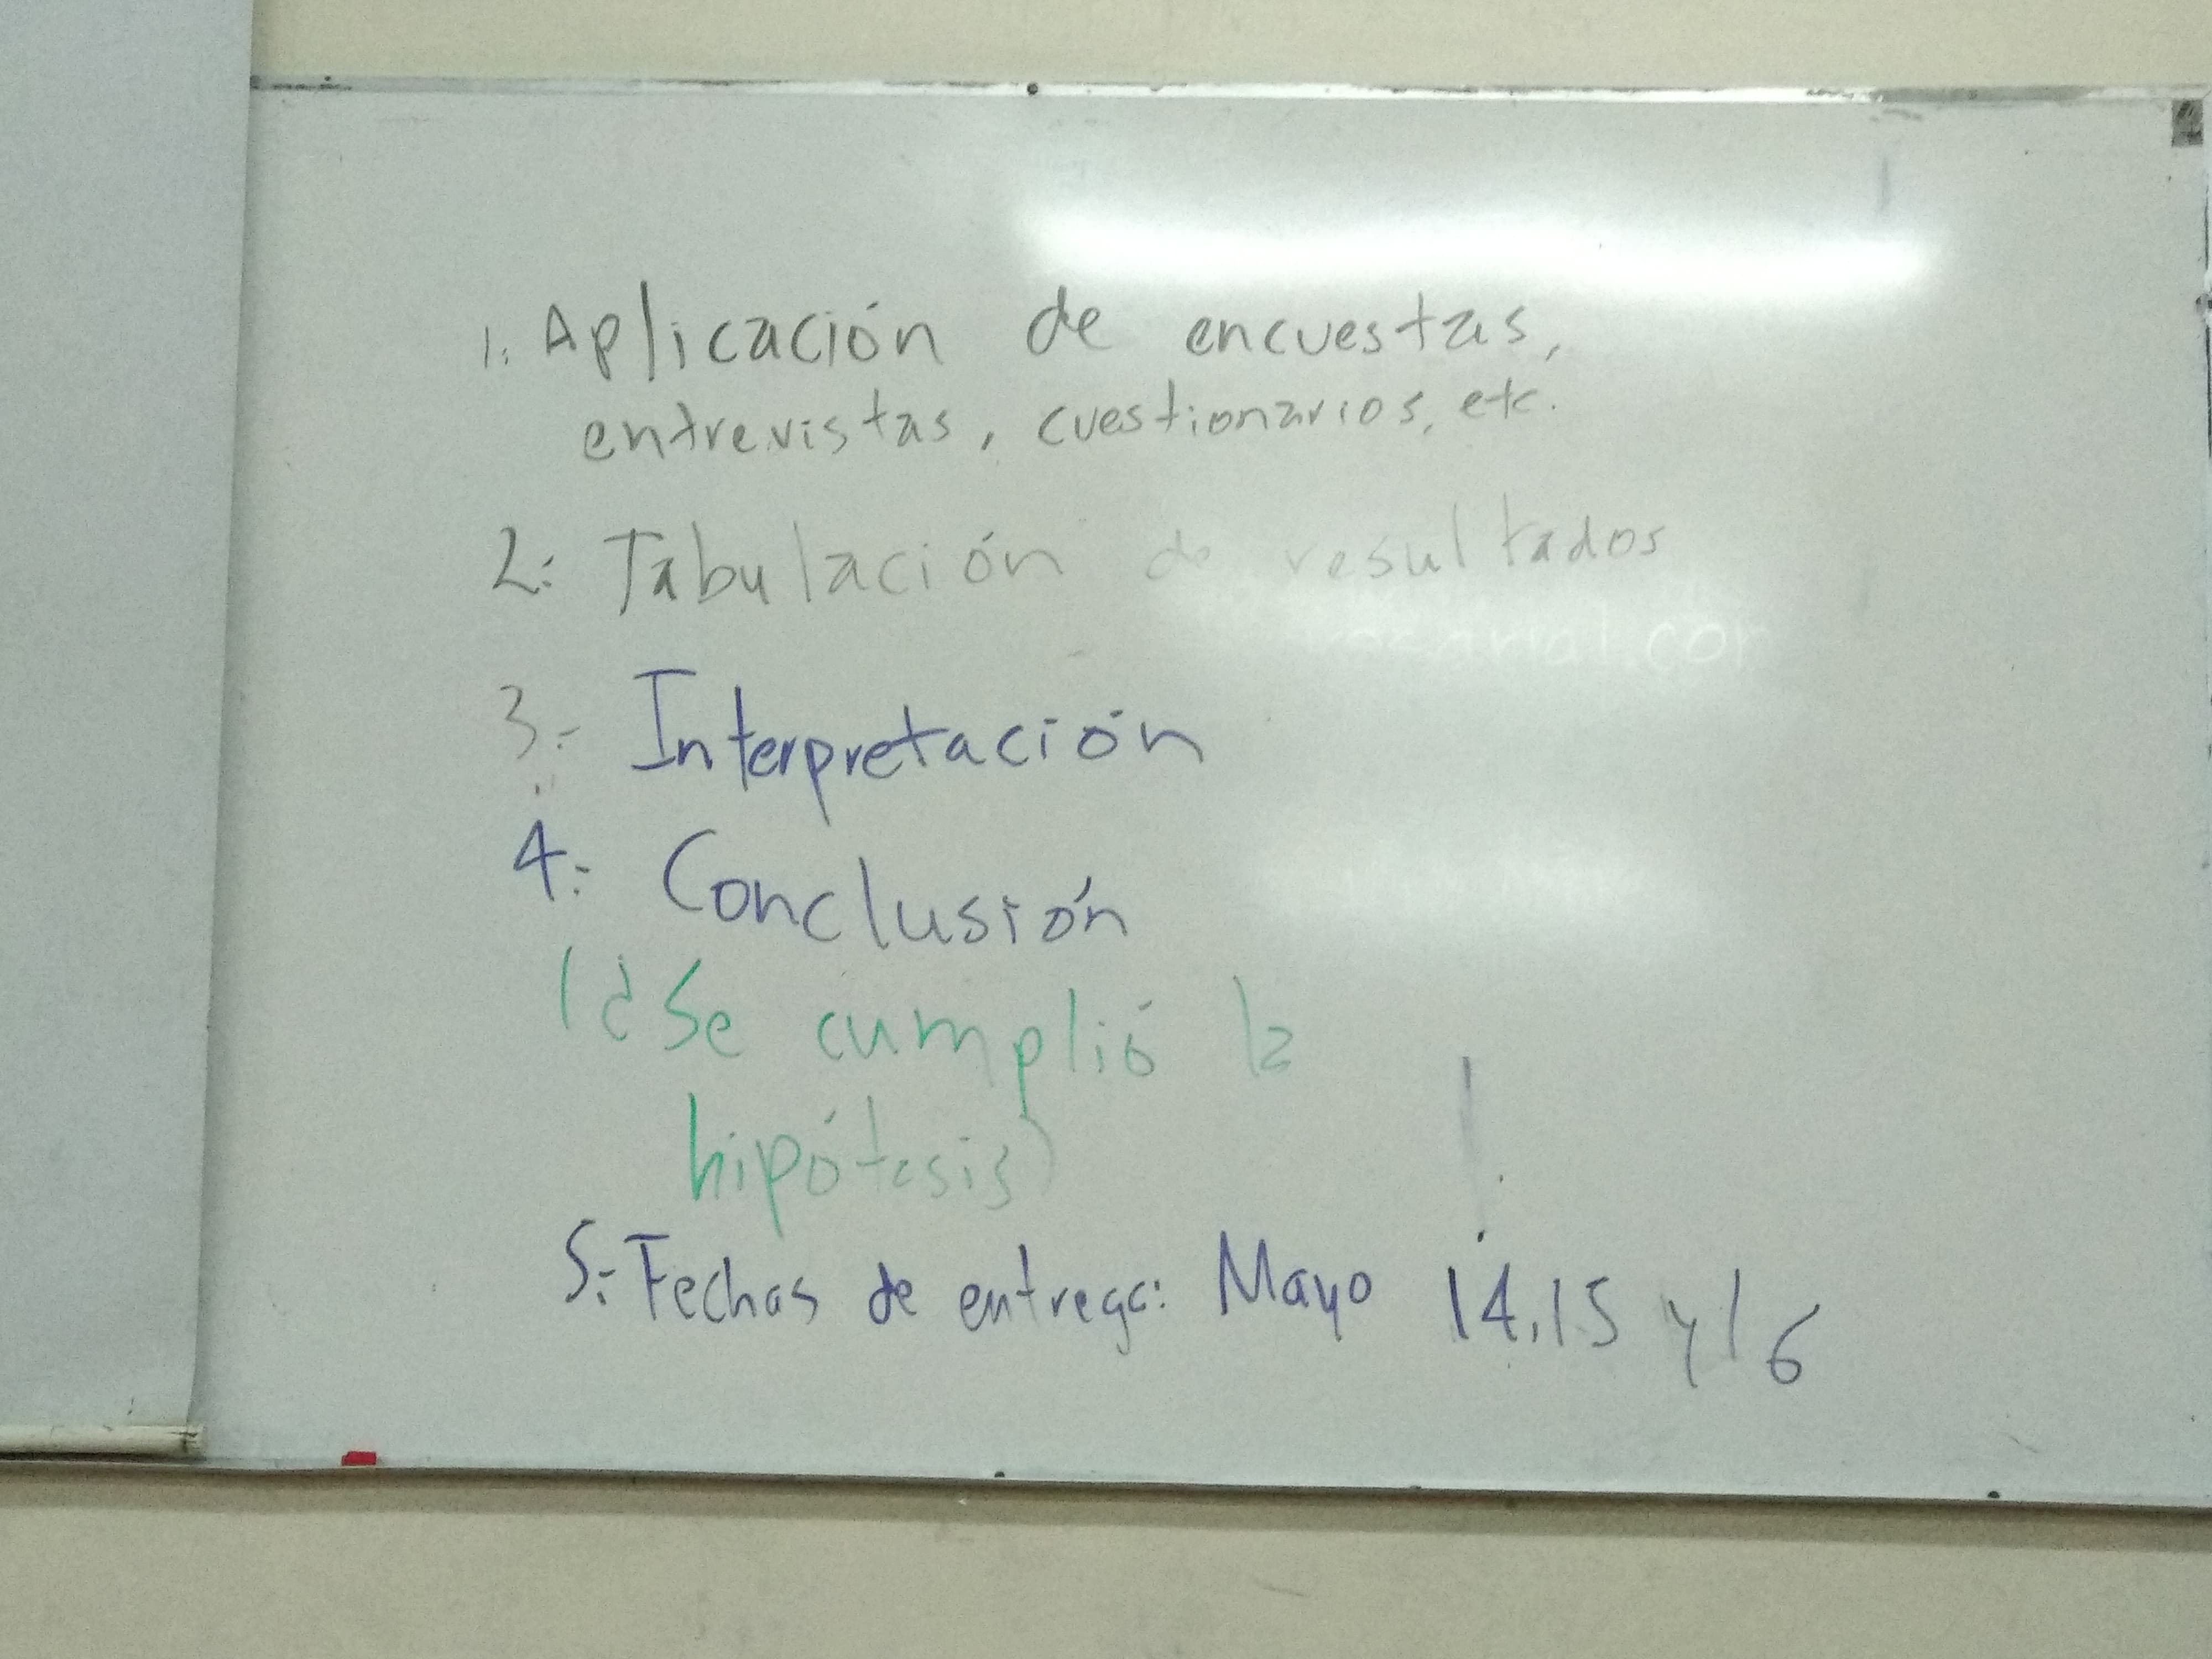 1. Aplicación de encuestas,
entrevistas, cuestionarios, etc.
2.- Tabulación de resultados
3.- Interpretación
4.- Conclusión
(¿Se cumplió la
hipótesis)
5.- Fechas de entrega: Mayo 14, 15 y 16